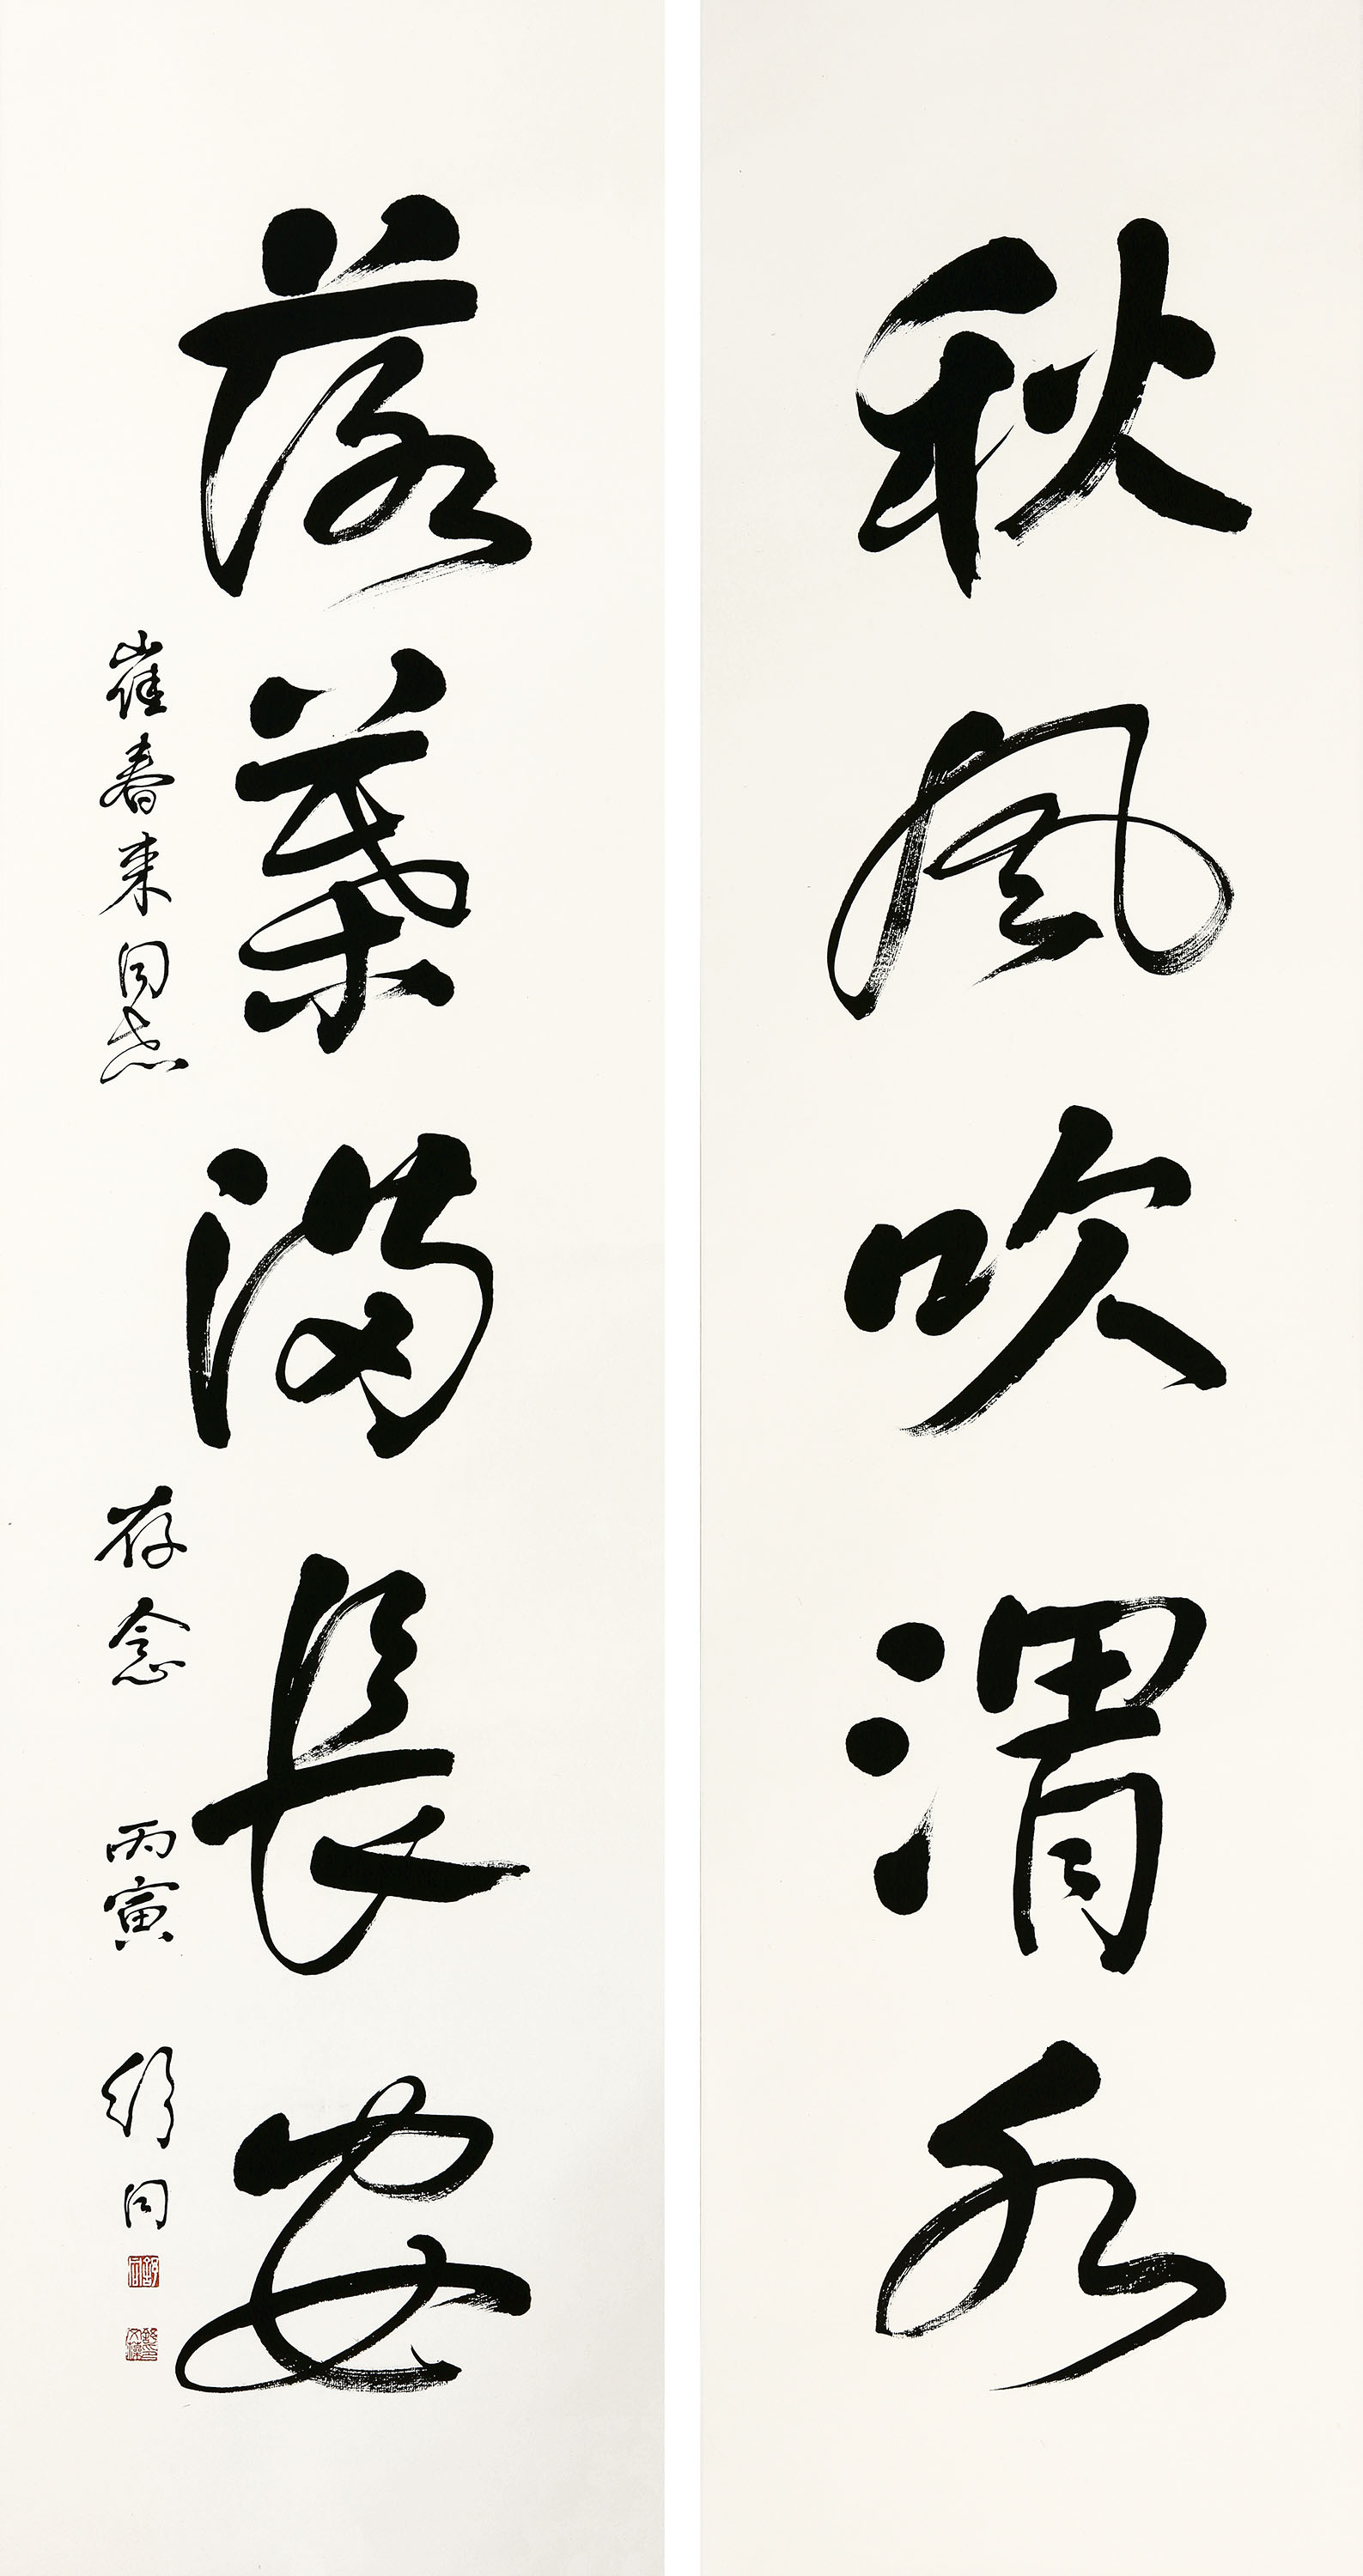 秋風吹渭水
落葉滿長安
崔春來同志
存念
丙寅
舒同